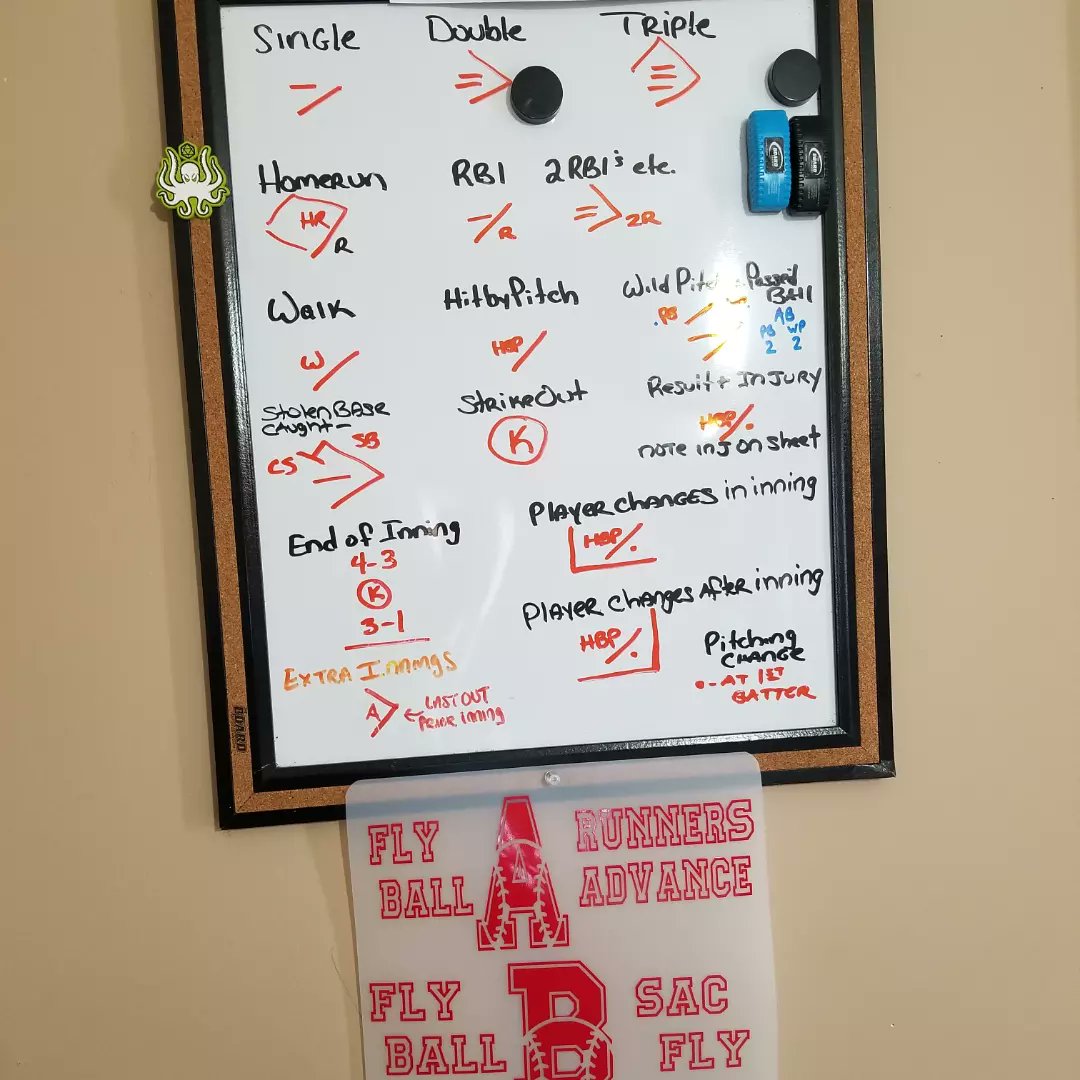 Single Double Triple
Homerun RBI 2RBI's etc.
HR
R
R
2R
Walk Hit by Pitch Wild Pitch Passed
Ball
W
HBP
PB
AB
PB WP
2 2
Stolen Base
Caught -
SB
CS
StrikeOut
K
Result + INJURY
HBP
note inj on sheet
Player changes in inning
HBP
End of Inning
4-3
K
3-1
Player changes After inning
HBP
Pitching
Change
- AT 1st
BATTER
Extra Innings
A
LAST OUT
PRIOR inning
DOARD
FLY A RUNNERS
BALL ADVANCE
FLY B SAC
BALL FLY